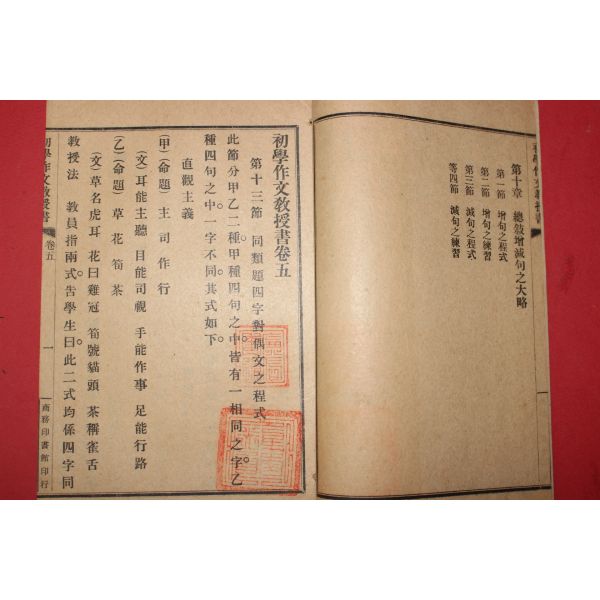 初學作文教授書
第十章　總敍增減句之大略
第一節　增句之程式
第二節　增句之練習
第三節　減句之程式
等四節　減句之練習
初學作文教授書卷五
第十三節　同類題四字對偶文之程式
此節分甲乙二種。甲種四句之中。皆有一相同之字。乙
種四句之中。一字不同。其式如下。
直觀主義
(甲)(命題)　主司作行
(文)耳能主聽　目能司視　手能作事　足能行路
(乙)(命題)　草花筍茶
(文)草名虎耳　花曰雞冠　筍號貓頭　茶稱雀舌
教授法　教員指兩式。告學生曰。此二式均係四字同
初學作文教授書　卷五　一　商務印書館印行